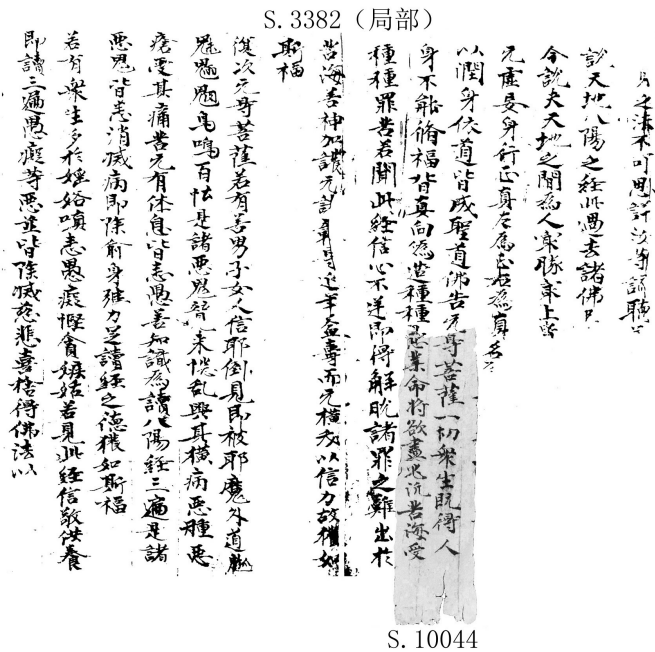 S.3382（局部）
說天地八陽之經此過去諸佛已
今說夫天地之間為人㝡勝㝡上皆
元虛妄身行正真左為正右為真
以潤身依道皆成聖道佛告元㝵菩薩一切衆生既得人
身不能脩福皆真向偽造種種惡業命將欲盡必沉苦海受
種種罪苦若聞此經信心不逆即得解脫諸罪之難出於
苦海善神加護元諸
而元橫夭以信力故獲如
斯福
復次元㝵菩薩若有善男子女人信耶倒見即被耶魔外道
鳥鳴百怪是諸惡鬼競來惱乱與其橫病惡腫惡
受其痛苦元有休息皆悉愚善知識為讀八陽經三遍是諸
惡鬼皆悉消滅病即除俞身強力足讀經之德獲如斯福
若有衆生多於婬慾嗔恚愚癡慳貪嫉妬若見此經信敬供養
即讀三遍愚癡等惡並皆除滅慈悲喜捨得佛法
S.10044